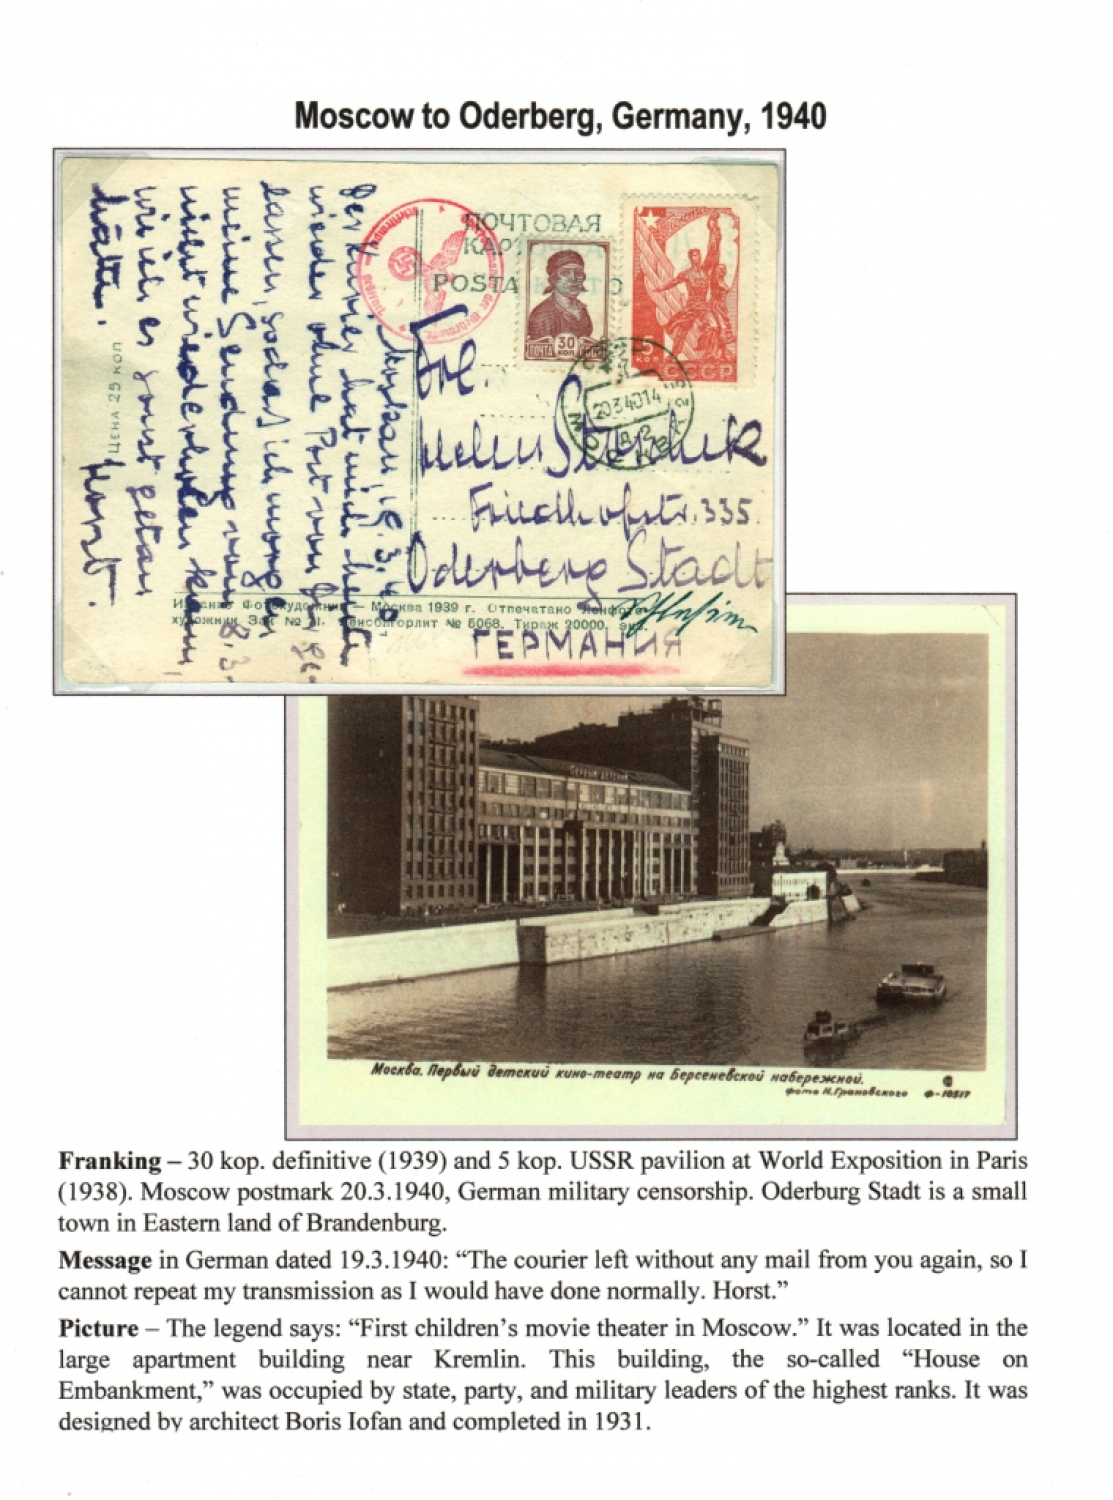 Moscow to Oderberg, Germany, 1940
ПОЧТОВАЯ
POSTA
30
ПОЧТА КОП
5 КОП
СССР
20.3.40.14
МОСКВА
Frl.
Helen
Friedhofstr. 335.
Oderberg Stadt
ГЕРМАНИЯ
Moskau, 19.3.40.
Der Kurier hat mich heute
wieder ohne Post von
lassen, sodass ich morgen
meine Sendung vom 8.3.
nicht wiederholen kann,
wie ich es sonst getan
hätte.
Horst.
ЦЕНА 25 КОП
Издание Фотохудожник — Москва 1939 г. Отпечатано Ленфото-
художник Зак № 71. Ленсблгорлит № 5068. Тираж 20000. экз.
Москва. Первый детский кино-театр на Берсеневской набережной.
фото Н.Грановского Ф-10517
Franking – 30 kop. definitive (1939) and 5 kop. USSR pavilion at World Exposition in Paris
(1938). Moscow postmark 20.3.1940, German military censorship. Oderburg Stadt is a small
town in Eastern land of Brandenburg.
Message in German dated 19.3.1940: “The courier left without any mail from you again, so I
cannot repeat my transmission as I would have done normally. Horst.”
Picture – The legend says: “First children’s movie theater in Moscow.” It was located in the
large apartment building near Kremlin. This building, the so-called “House on
Embankment,” was occupied by state, party, and military leaders of the highest ranks. It was
designed by architect Boris Iofan and completed in 1931.